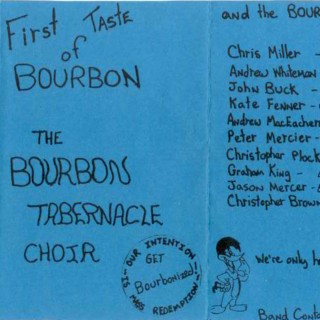 First TASTE
of
BOURBON
THE
BOURBON
TABERNACLE
CHOIR
OUR INTENTION
IS MASS REDEMPTION
GET
Bourbonized!
and the BOUR
Chris Miller -
Andrew Whiteman
John Buck -
Kate Fenner -
Andrew MacEachern
Peter Mercier -
Christopher Plock
Graham King -
Jason Mercer -
Christopher Brown
We're only h
Band Conta